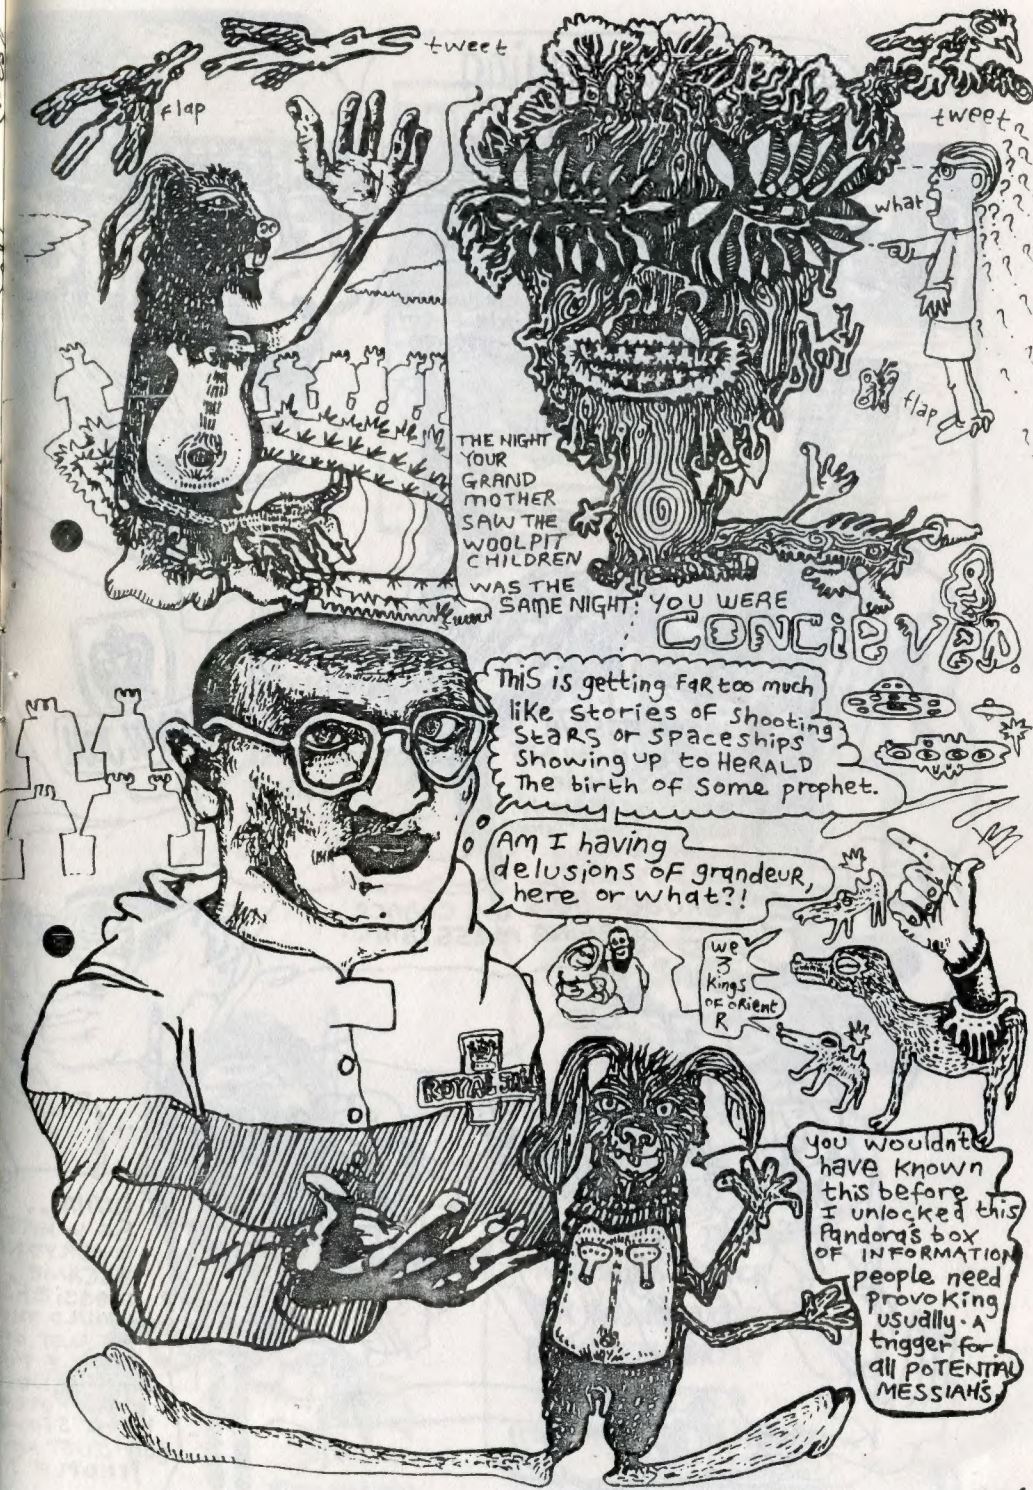 tweet
flap
tweet
what
flap
THE NIGHT
YOUR
GRAND
MOTHER
SAW THE
WOOLPIT
CHILDREN
WAS THE
SAME NIGHT: YOU WERE
CONCIEVED.
This is getting FAR too much
like stories of shooting
StaRS or spaceships
Showing up to HeRALD
The birth of Some prophet.
Am I having
delusions of grandeur,
here or what?!
we
3
Kings
OF ORient
R
ROYAL
you wouldn't
have known
this before
I unlocked this
Pandora's box
OF INFORMATION
people need
provoking
usually. A
trigger for
all POTENTIAL
MESSIAH'S